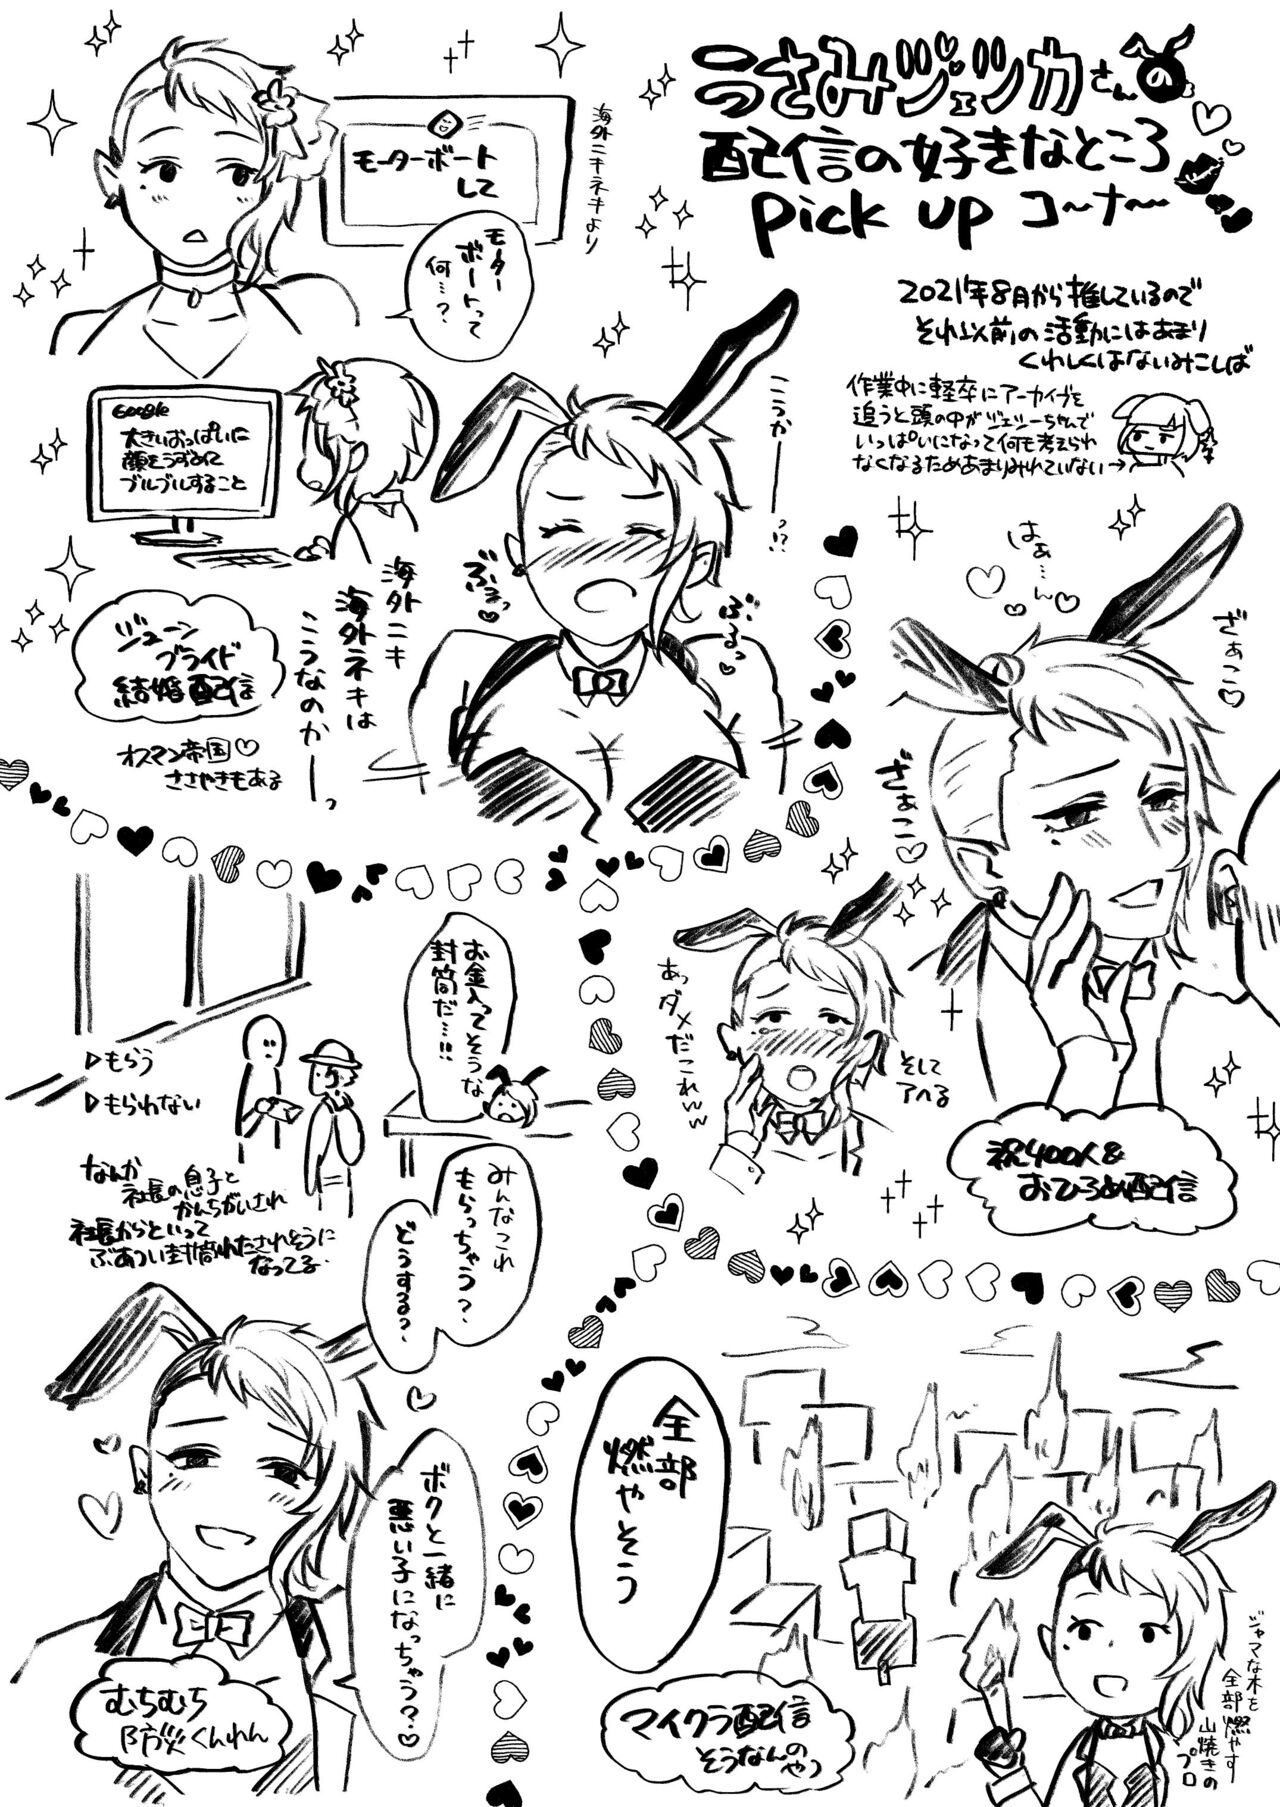 うさみヂェッカさんの
配信の好きなところ
pick up コ〜ナ〜
2021年8月から推しているので
それ以前の活動にはあまり
くわしくはないみこしば
作業中に軽率にアーカイブを
追うと頭の中がヂェシーちゃんで
いっぱいになって何も考えられ
なくなるためあまりみれていない→
海外ニキネキより
モーターボート
して
モーター
ボートって
何…?
Google
大きいおっぱいに
顔をうずめて
ブルブルすること
海外ニキ
海外ネキは
こうなのかーっ
こうかーーっ!?
ぶるっ
ジューン
ブライド
結婚配信
オスマン帝国♡
ささやきもある
はぁ…ん
ざぁこ♡
ざぁこ♡
あっダメだこれww
そして
アへる
祝400人&
おひろめ配信
お金入ってそうな
封筒だ…!!
▷もらう
▷もらわない
なんか
社長の息子と
かんちがいされ
社長からといって
ぶあつい封筒わたされそうに
なってる
みんなこれ
もらっちゃう?
どうする?
ボクと一緒に
悪い子になっちゃう?♡
むちむち
防災くんれん
全部
燃やそう
マイクラ配信
そうなんのやつ
ジャマな木を
全部燃やす
山焼きの
プロ